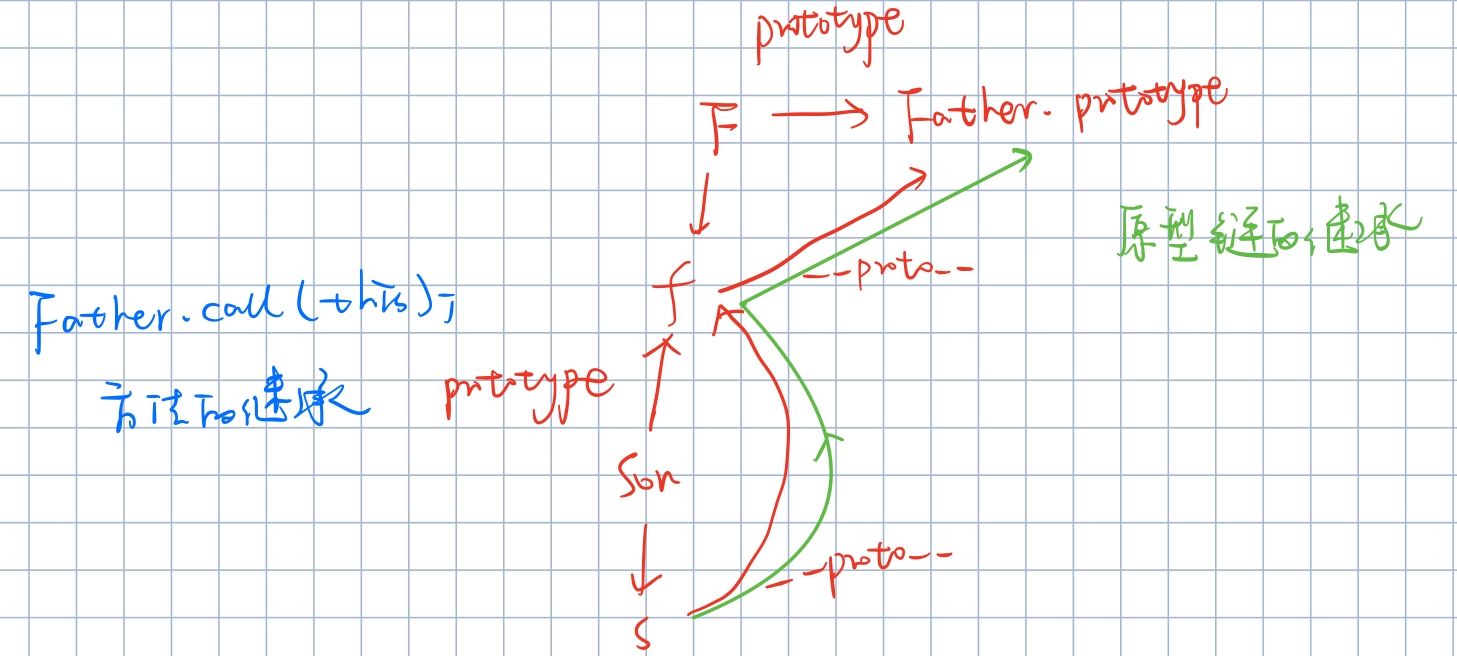 prototype
F → Father.prototype
原型链的继承
f
--proto--
Father.call(this);
方法的继承
prototype
Son
--proto--
s